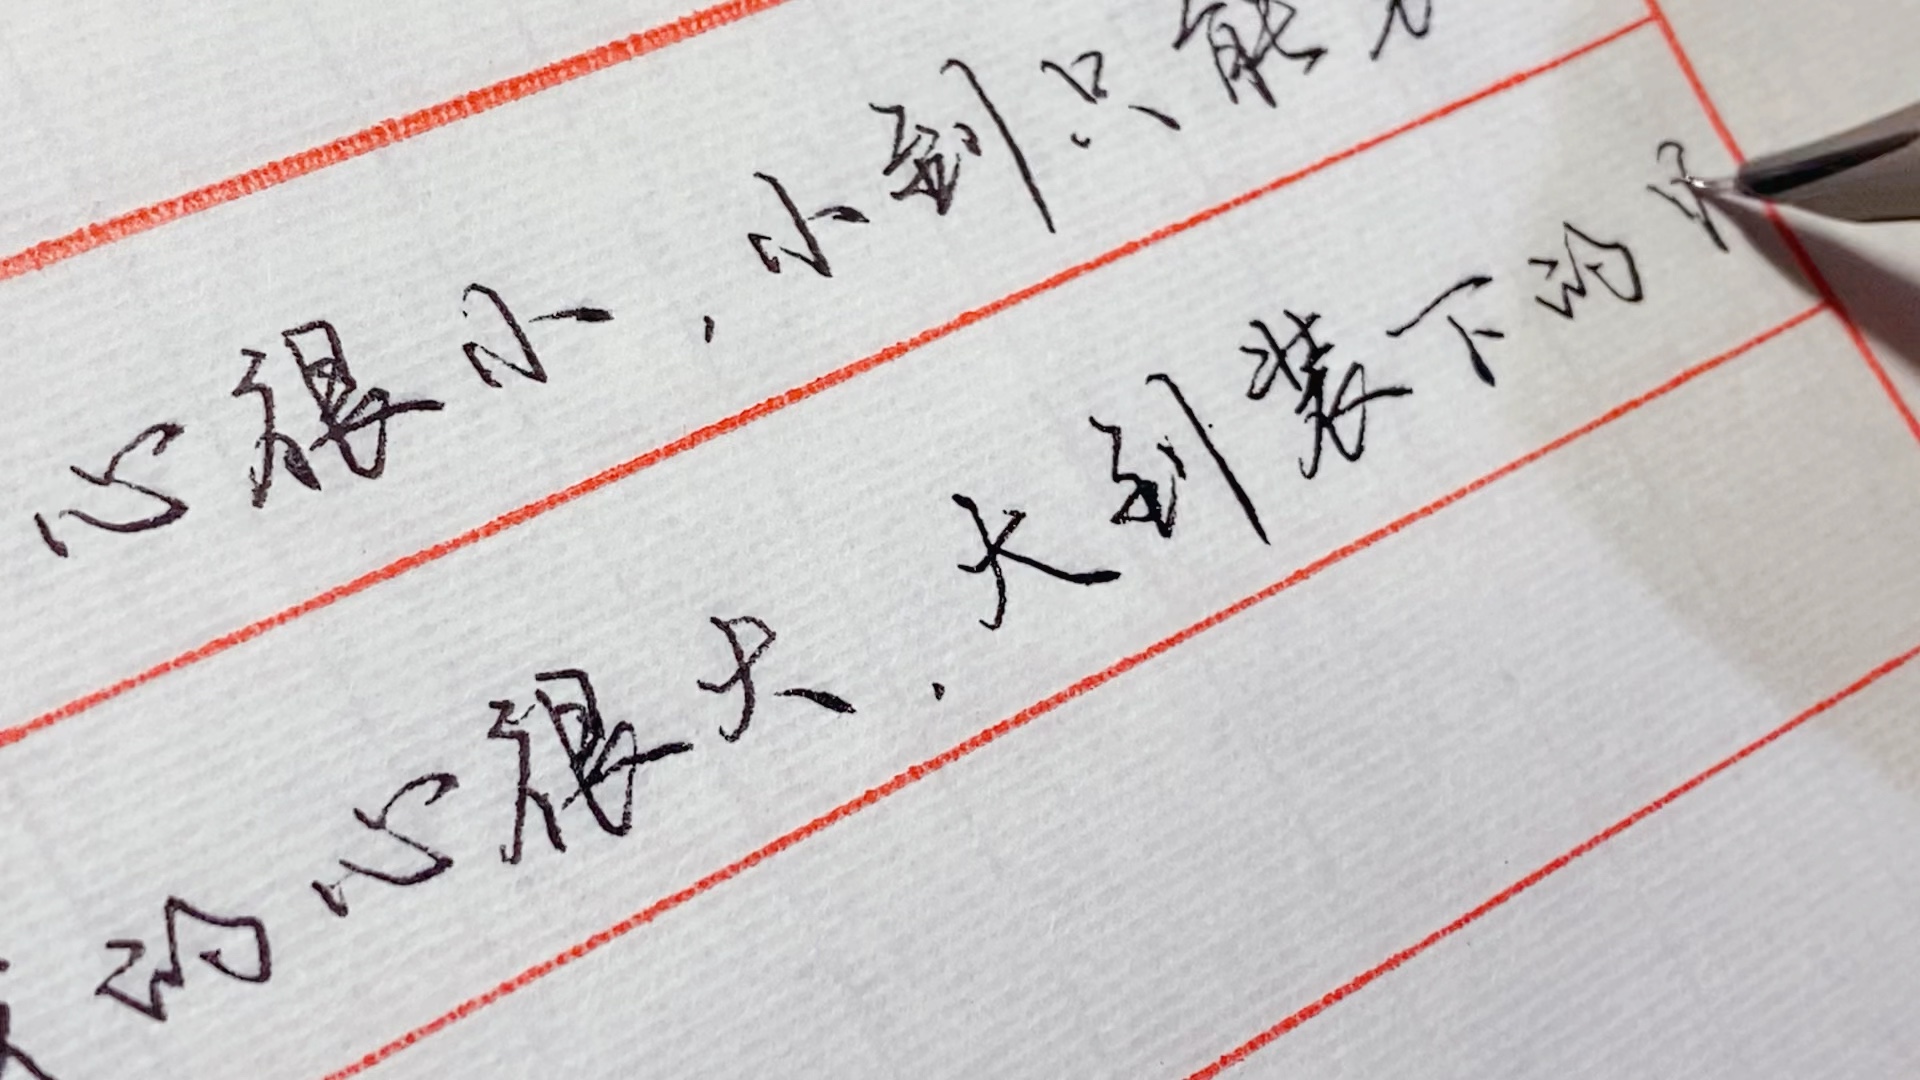 心很小，小到只能
的心很大，大到装下的